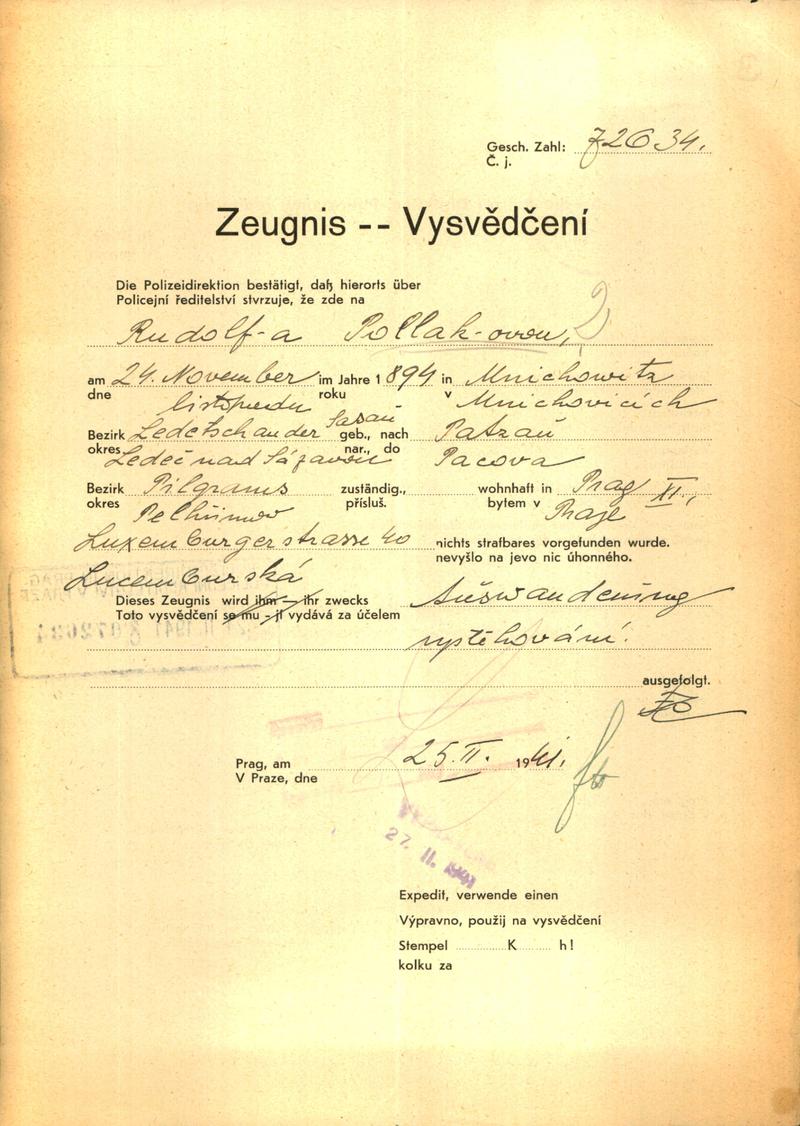 Gesch. Zahl: 72634.
Č. j.
Zeugnis -- Vysvědčení
Die Polizeidirektion bestätigt, daß hierorts über
Policejní ředitelství stvrzuje, že zde na
Rudolf-a Pollak-ovou,
am 24. November im Jahre 1894 in Mnichowitz
dne listopadu roku v Mnichovicích
Bezirk Ledetsch an der Sasau geb., nach Patzau
okres Ledeč nad Sázavou nar., do Pacova
Bezirk Pilgrams zuständig., wohnhaft in Prag XII.,
okres Pelhřimov přísluš. bytem v Praze
Luxemburgerstrasse 40 nichts strafbares vorgefunden wurde.
nevyšlo na jevo nic úhonného.
Lucemburská
Dieses Zeugnis wird ihm - ihr zwecks Auswanderung
Toto vysvědčení se mu - jí vydává za účelem
vystěhování.
ausgefolgt.
Prag, am 25. II. 1941.
V Praze, dne
27. II. 1941
Expedit, verwende einen
Výpravno, použij na vysvědčení
Stempel K h!
kolku za